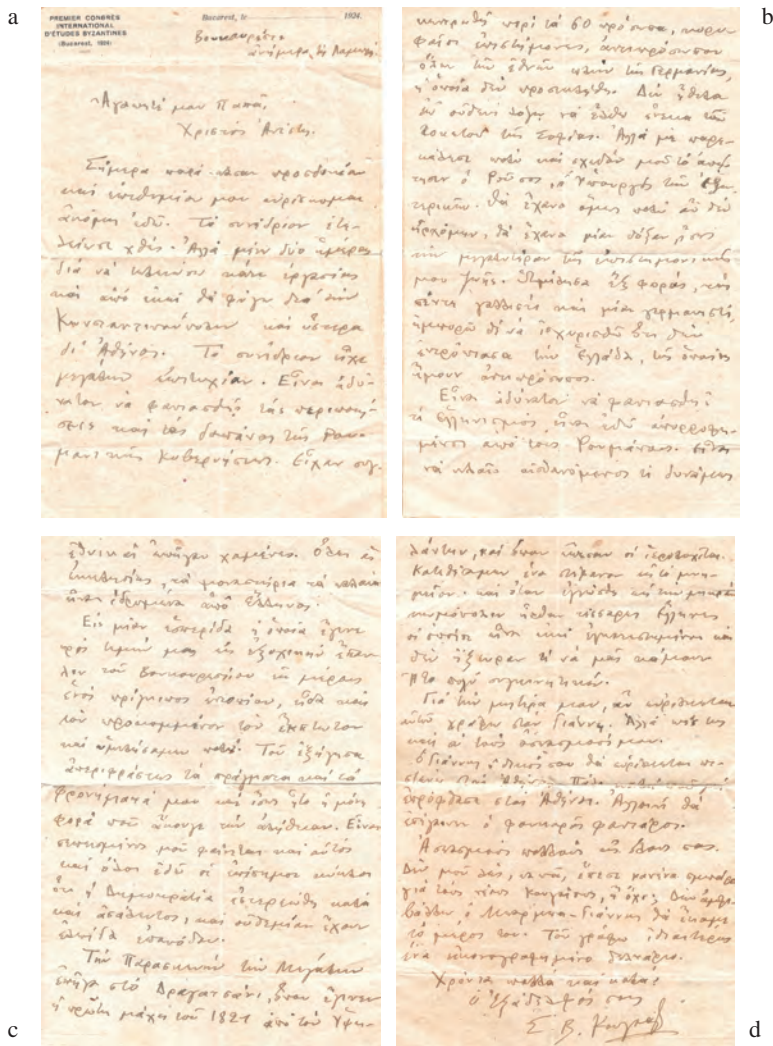 a
PREMIER CONGRÈS
INTERNATIONAL
D'ÉTUDES BYZANTINES
(Bucarest, 1924)
Bucarest, le 1924.
Βουκουρέστιον
Ἀγαπητέ μου Παπᾶ,
Χριστὸς Ἀνέστη.
Σήμερα παρὰ πᾶσαν προσδοκίαν
καὶ ἐπιθυμίαν μου εὑρίσκομαι
ἀκόμη ἐδῶ. Τὸ συνέδριον ἐτε-
λείωσε χθές. Ἀλλὰ μένω δύο ἡμέρας
διὰ νὰ κάτι ἐργασίας
καὶ ἀπὸ ἐκεῖ θὰ φύγω διὰ τὴν
Κωνσταντινούπολιν καὶ ὕστερα
δι' Ἀθήνας. Τὸ συνέδριον εἶχε
μεγάλην ἐπιτυχίαν. Εἶναι ἀδύ-
νατον νὰ φαντασθῇς τὰς περιποιή-
σεις καὶ τὰς δαπάνας τῆς Ρου-
μανικῆς Κυβερνήσεως. Εἶχαν συγ-
b
κεντρωθῆ περὶ τὰ 60 πρόσωπα, κορυ-
φαῖοι ἐπιστήμονες, ἀντιπρόσωποι
ὅλων τῶν ἐθνῶν πλὴν τῆς Γερμανίας,
ἡ ὁποία δὲν προσεκλήθη. Δὲν ἤθελα
νὰ ἔλθω ἕνεκα τοῦ
τῆς Σοφίας. Ἀλλὰ μὲ παρε-
κάλεσε πολὺ καὶ σχεδὸν μοῦ τὸ ἀπῄ-
τησεν ὁ Ροῦσος, ὁ Ὑπουργὸς τῶν Ἐξω-
τερικῶν. Θὰ ἔχανα ὅμως πολὺ ἂν δὲν
ἠρχόμην, θὰ ἔχανα μίαν δόξαν, ἴσως
τὴν μεγαλυτέραν τῆς ἐπιστημονικῆς
μου ζωῆς. Ὡμίλησα ἓξ φοράς,
πέντε γαλλιστὶ καὶ μίαν γερμανιστί,
ἠμπορῶ δὲ νὰ ἰσχυρισθῶ ὅτι δὲν
ἐντρόπιασα τὴν Ἑλλάδα, τῆς ὁποίας
ἤμουν ἀντιπρόσωπος.
Εἶναι ἀδύνατον νὰ φαντασθῇς
τί ἑλληνισμὸς εἶναι ἐδῶ ἀπορροφη-
μένος ἀπὸ τοὺς Ρουμάνους.
νὰ κλαῖς αἰσθανόμενος τί δυνάμεις
c
ἐθνικαὶ ἐπῆγαν χαμένες. Ὅλαι αἱ
ἐκκλησίαι, τὰ μοναστήρια τὰ παλαιὰ
εἶναι ἱδρυμένα ἀπὸ Ἕλληνας.
Εἰς μίαν ἑσπερίδα ἡ ὁποία ἔγινε
πρὸς τιμήν μας εἰς ἐξοχικὴν ἔπαυ-
λιν τοῦ Βουκουρεστίου ἐκ μέρους
ἑνὸς πρίγκιπος εἶδα καὶ
τὸν
καὶ ὡμιλήσαμεν πολύ. Τοῦ ἐξήγησα
ἀπεριφράστως τὰ πράγματα καὶ τὰ
φρονήματά μου καὶ ἴσως ἦτο ἡ μόνη
φορὰ ποὺ ἤκουγε τὴν ἀλήθειαν. Εἶναι
πεπεισμένος μοῦ φαίνεται καὶ αὐτὸς
καὶ ὅλοι ἐδῶ οἱ ἐπίσημοι κύκλοι
ὅτι ἡ Δημοκρατία ἐστερεώθη καλὰ
καὶ ἀσάλευτος, καὶ οὐδεμίαν ἔχουν
ἐλπίδα ἐπανόδου.
Τὴν Παρασκευὴν τὴν Μεγάλην
ἐπῆγα στὸ Δραγατσάνι, ὅπου ἔγινεν
ἡ πρώτη μάχη τοῦ 1821 ἀπὸ τὸν Ὑψη-
d
λάντην, καὶ ὅπου ἔπεσαν οἱ ἱερολοχῖται.
Κατεθέσαμεν ἕνα στέφανον εἰς τὸ μνη-
μεῖον. καὶ ὅταν ἐγνώσθη εἰς τὴν μικρὰν
κωμόπολιν ἦλθαν τέσσαρες Ἕλληνες
οἱ ὁποῖοι εἶναι ἐκεῖ ἐγκατεστημένοι καὶ
δὲν ἤξευραν τί νὰ μᾶς κάμουν.
Ἦτο πολὺ συγκινητικόν.
Γιὰ τὴν μητέρα μου, ἂν εὑρίσκεται
αὐτοῦ γράφω στὸν Γιάννη. Ἀλλὰ πές της
καὶ σὺ τοὺς ἀσπασμούς μου.
Ὁ Γιάννης ὁ δικός σου θὰ εὑρίσκεται
στὰς Ἀθήνας.
ἐπρόφθασε στὰς Ἀθήνας. θὰ
ὁ φανταρὸς
Ἀσπασμοὺς πολλοὺς εἰς ὅλους σας.
Δὲν μοῦ λές,
γιὰ τοὺς ἢ ὄχι; Δὲν ἀμφι-
βάλλω, ὁ Μπάρμπα-Γιάννης θὰ ἔκαμε
τὸ μέρος του. Τοῦ γράφω ἰδιαιτέρως
ἕνα εἰκονογραφημένο δελτάριο.
Χρόνια πολλὰ καὶ καλά!
ὁ ἐξάδελφός σας
Σ. Β. Κουγέας